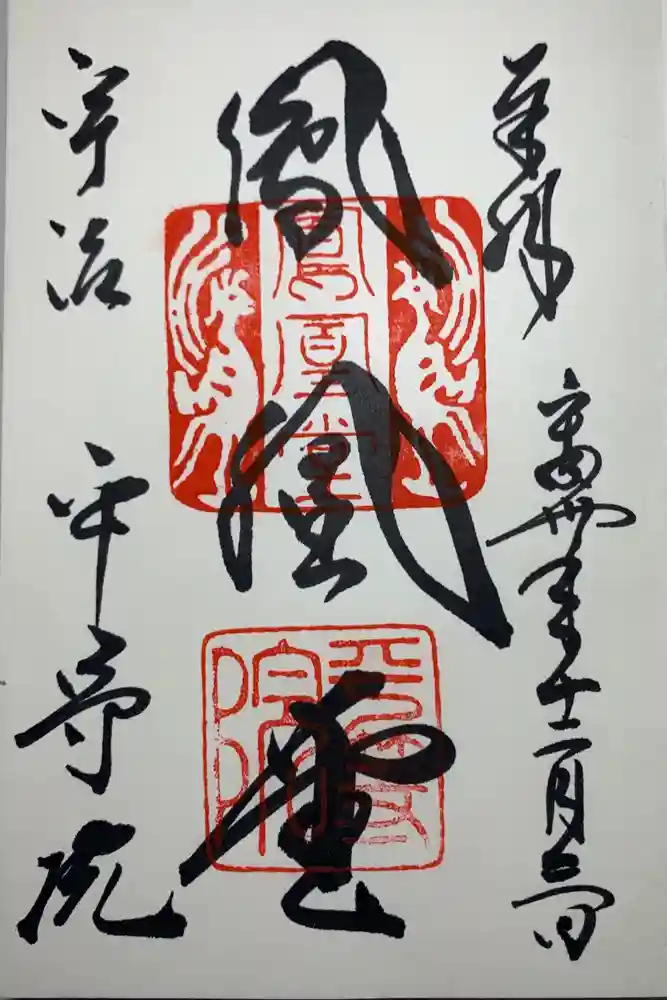 奉拝 十二月 日
鳳凰堂
鳳凰堂
平等院
宇治 平等院